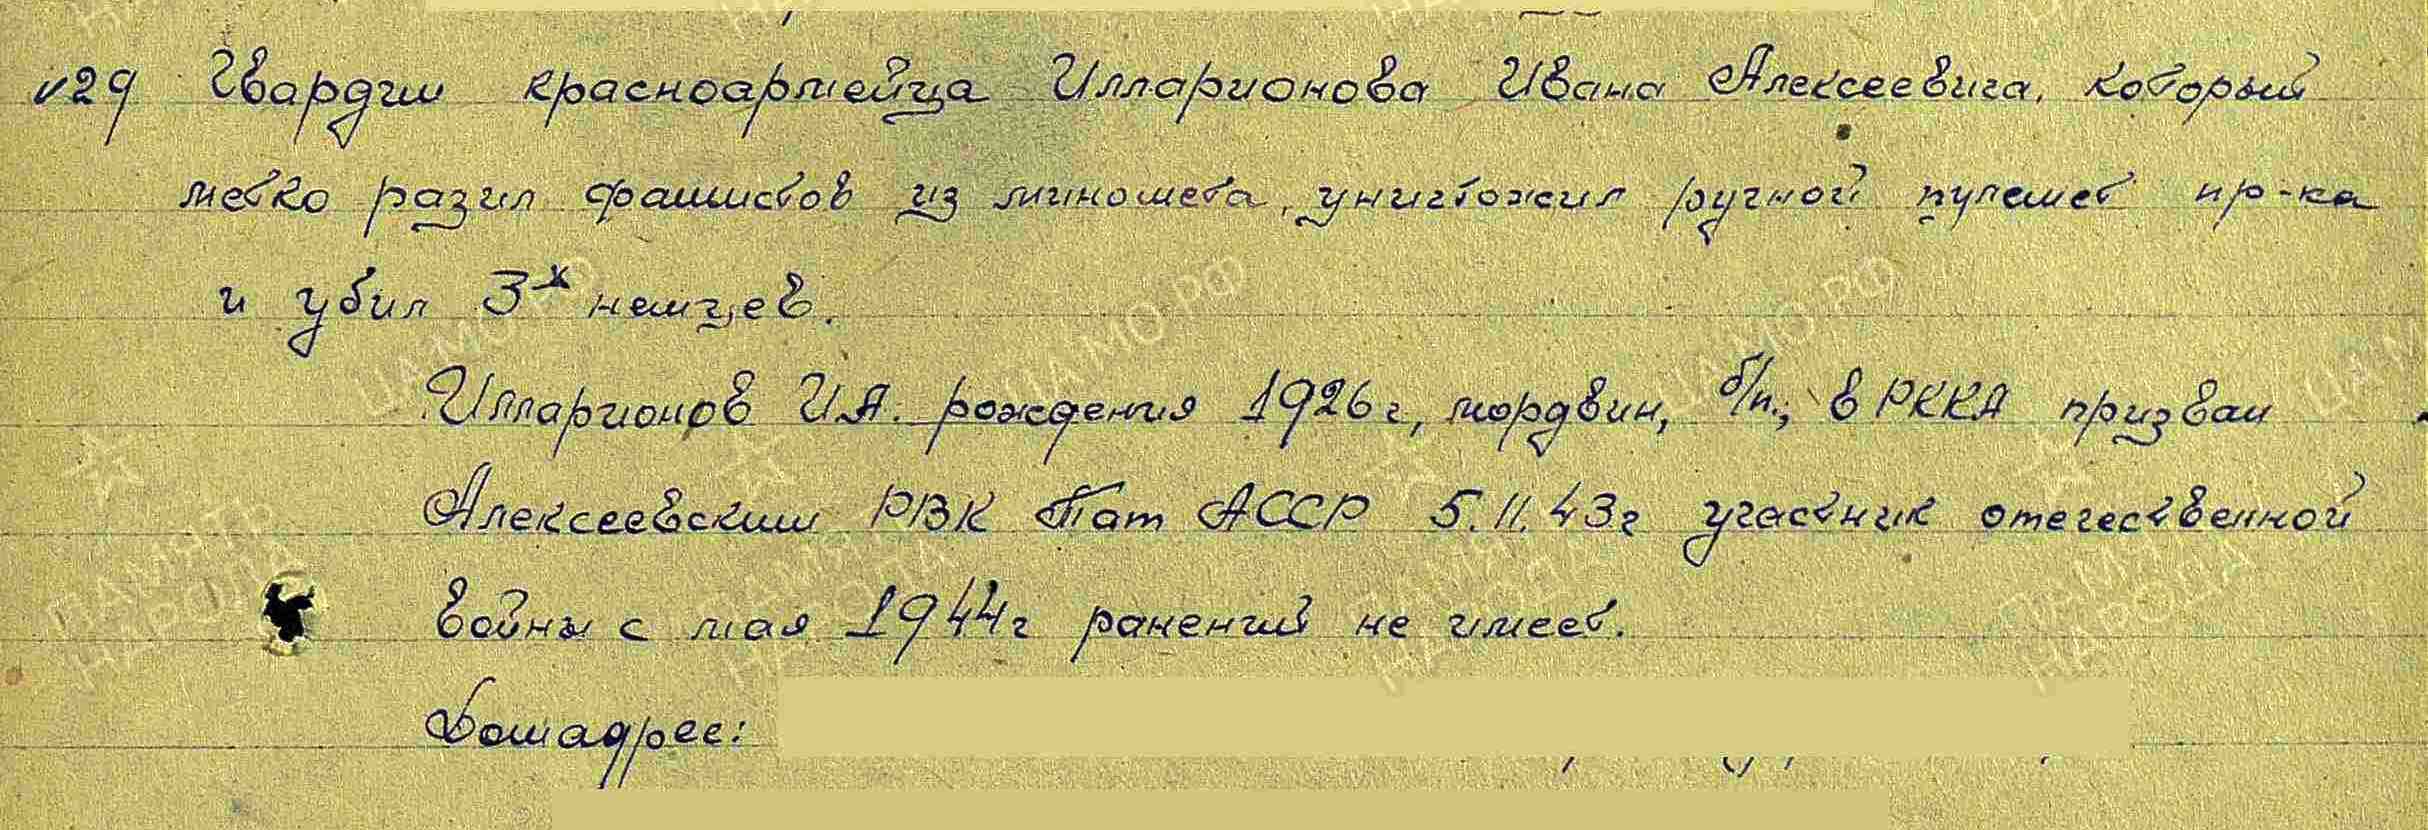 29 Гвардии красноармейца Илларионова Ивана Алексеевича, который
метко разил фашистов из миномета, уничтожил ручной пулемет пр-ка
и убил 3-х немцев.
Илларионов И.А. рождения 1926г, мордвин, б/п, в РККА призван
Алексеевским РВК Тат АССР 5.11.43г участник отечественной
войны с мая 1944г ранений не имеет.
Домадрес:
ЦАМО.РФ
ПАМЯТЬ
НАРОДА